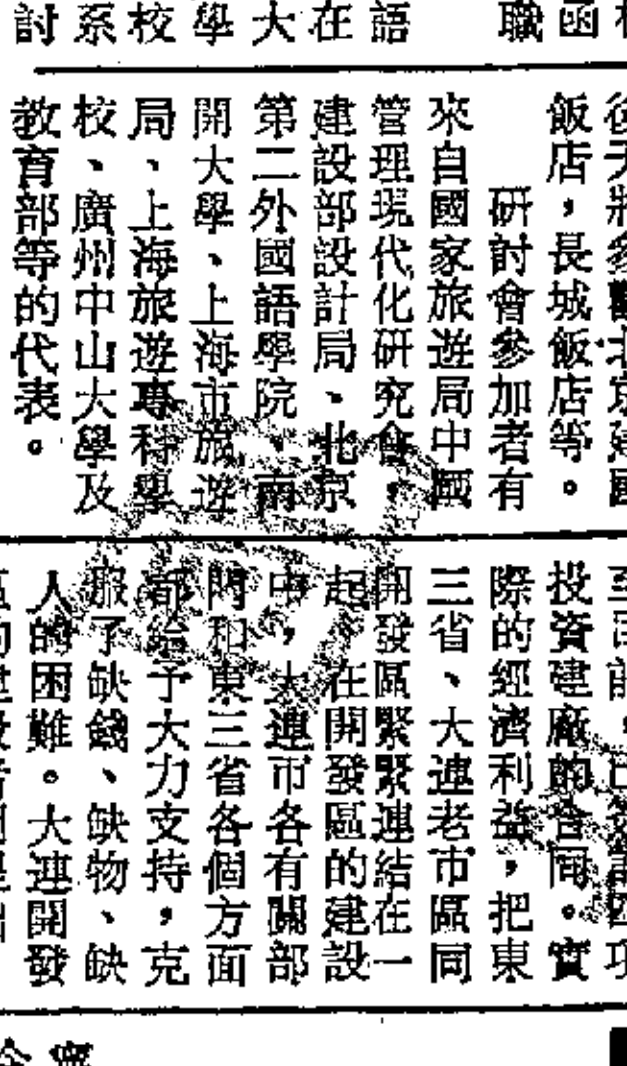 職
語
在
大
學
校
系
討
飯店，長城飯店等。
研討會參加者有
來自國家旅遊局中國
管理現代化研究會，
建設部設計局、北京
第二外國語學院、南
開大學、上海市旅遊
局、上海旅遊專科學
校、廣州中山大學及
教育部等的代表。
投資建廠的合同。實
際的經濟利益，把東
三省、大連老市區同
開發區緊緊連結在一
起。在開發區的建設
中，大連市各有關部
門和東三省各個方面
都給予大力支持，克
服了缺錢、缺物、缺
人的困難。大連開發